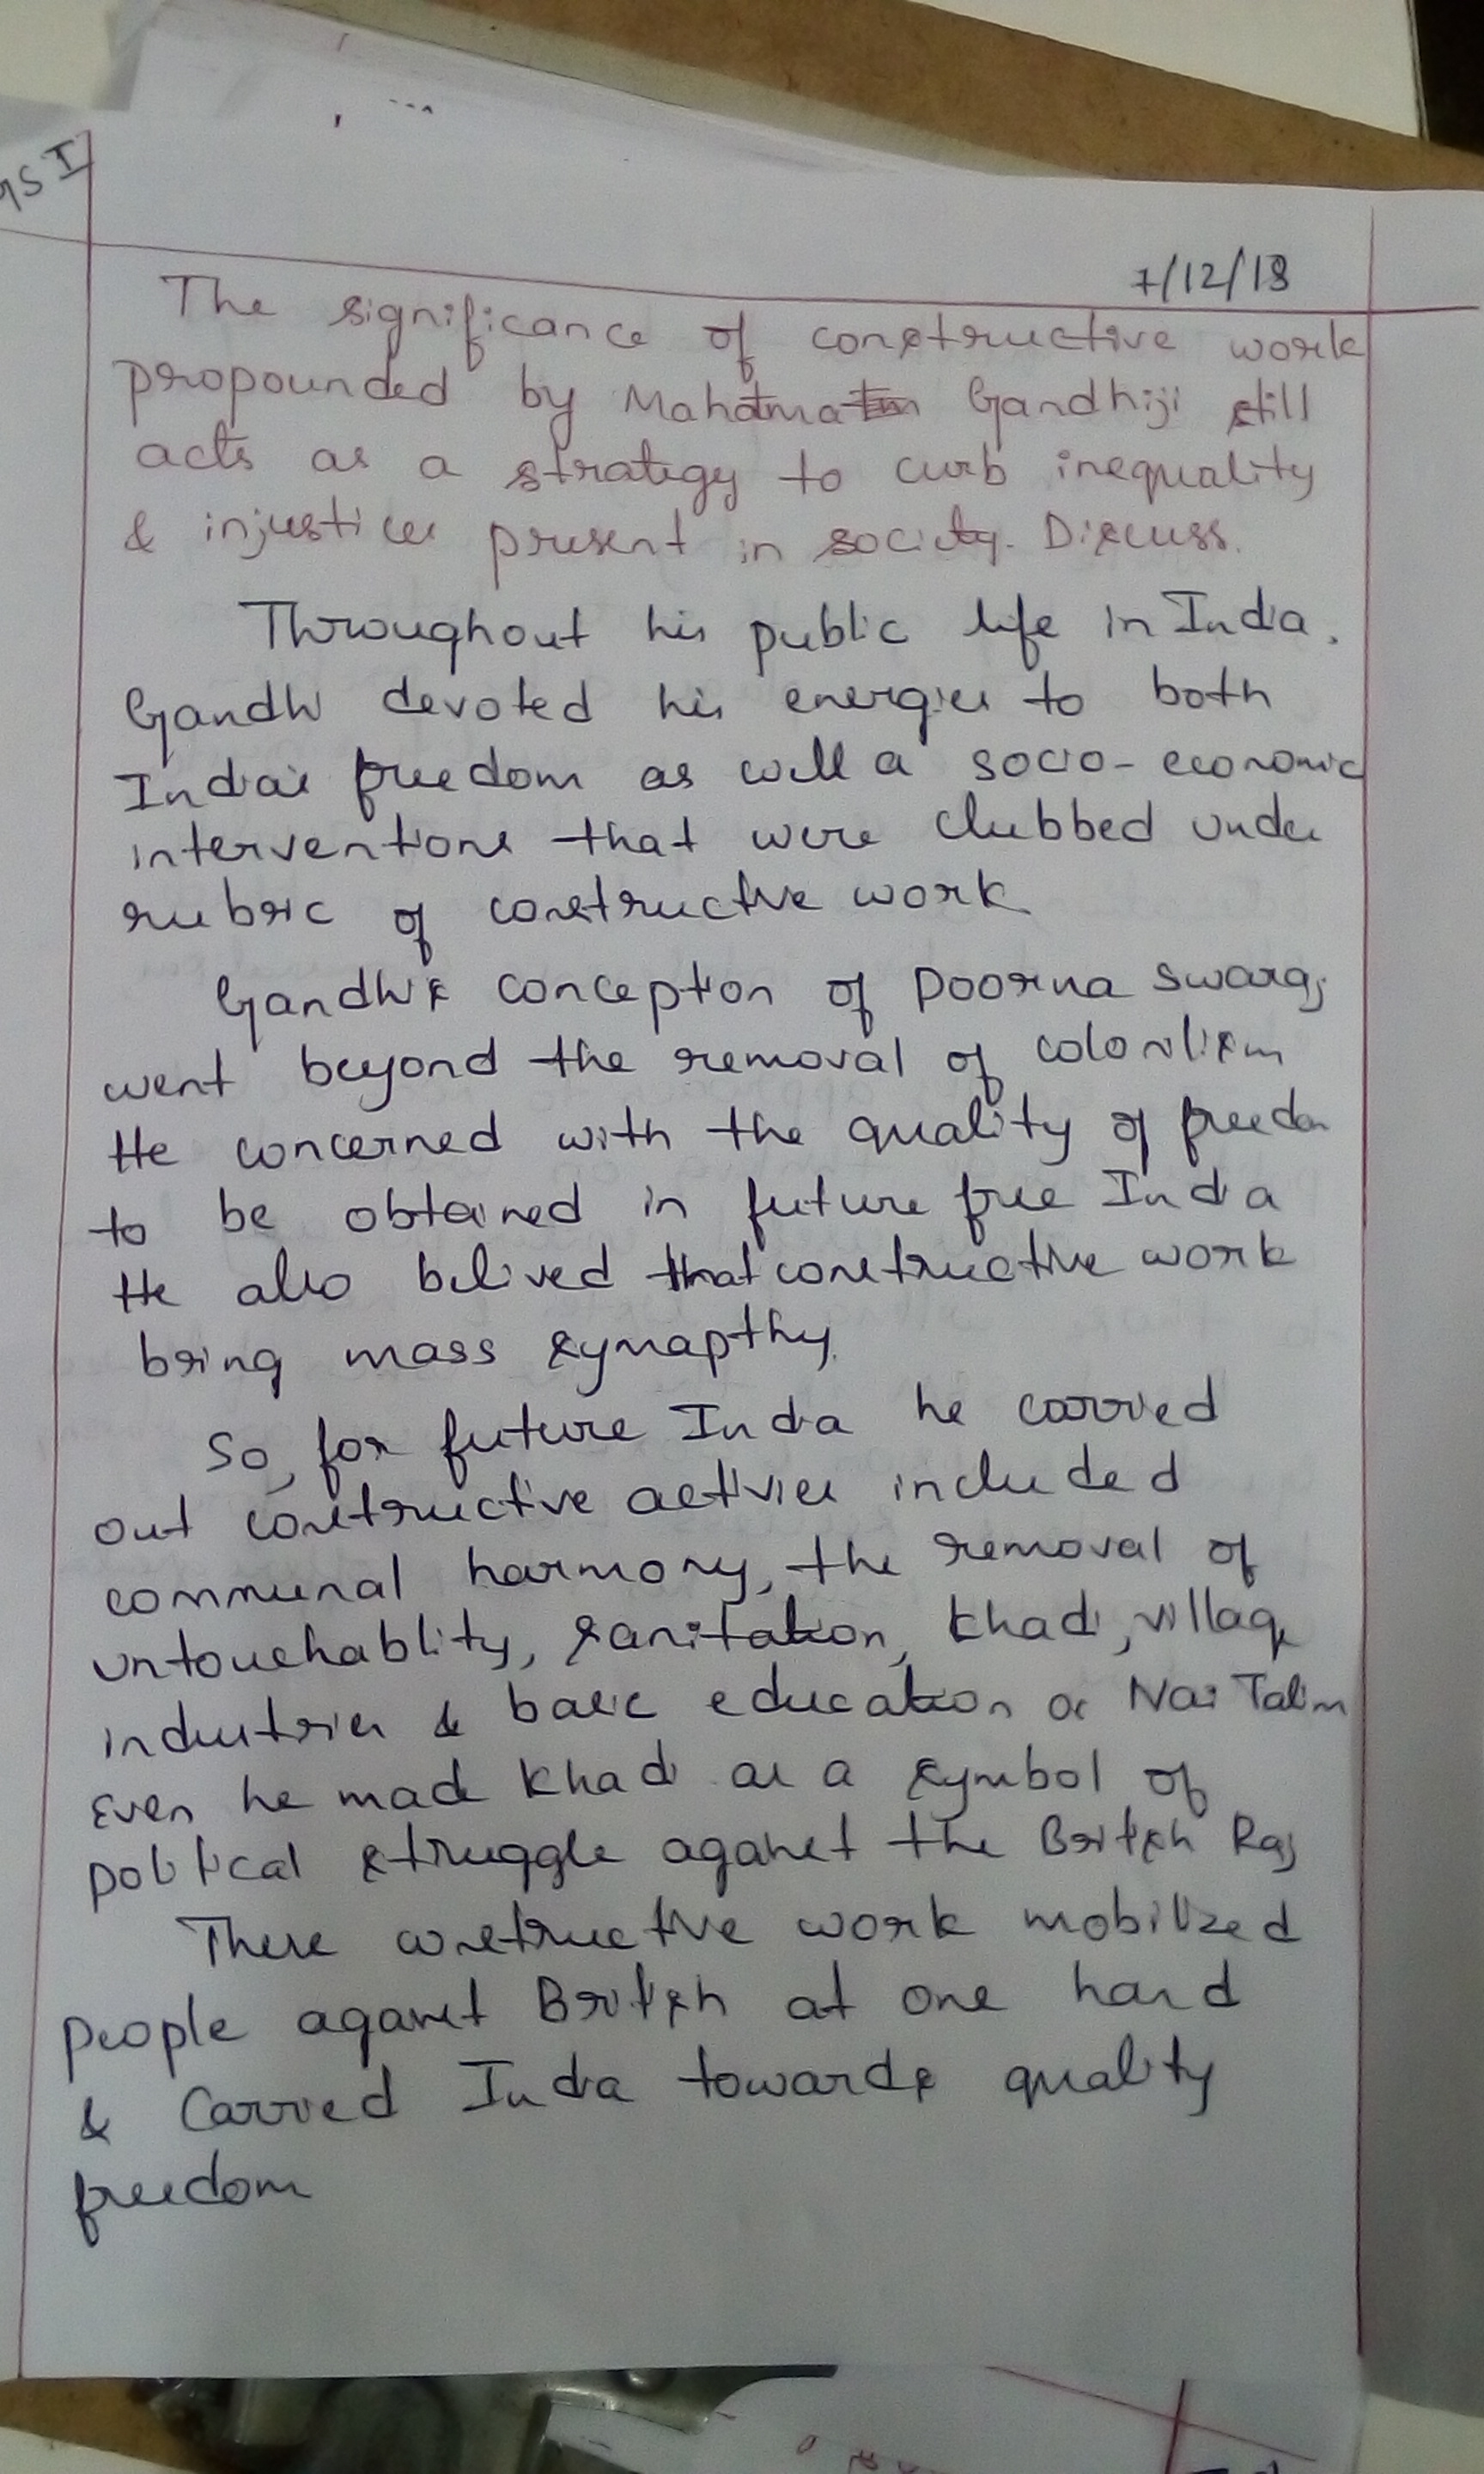 GS I
7/12/18
The significance of constructive work
propounded by Mahatma Gandhiji still
acts as a strategy to curb inequality
& injustices present in society. Discuss.
Throughout his public life in India,
Gandhi devoted his energies to both
India's freedom as well a socio-economic
interventions that were clubbed under
rubric of constructive work
Gandhi's conception of Poorna Swaraj
went beyond the removal of colonilism
He concerned with the quality of freedom
to be obtained in future free India
He also belived that constructive work
bring mass synapthy.
So, for future India he carried
out constructive activies included
communal harmony, the removal of
untouchablity, sanitation, khadi, village
industries & basic education or Nai Talim
Even he made khadi as a symbol of
political struggle against the British Raj
These constructive work mobilized
people against British at one hand
& Carried India towards quality
freedom